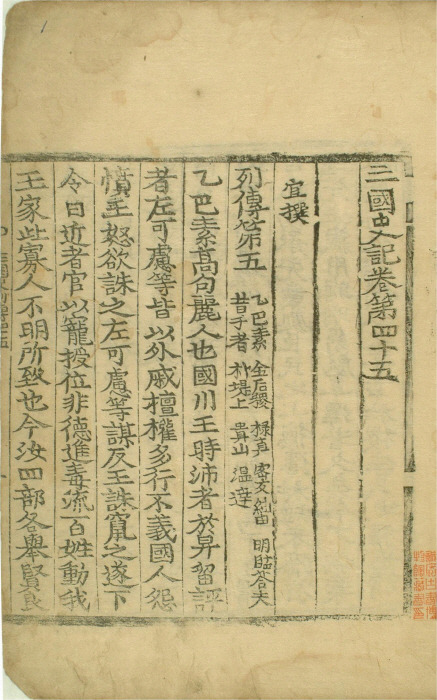 三國史記卷第四十五
宣撰
列傳第五
乙巴素 金后稷 祿真 密友紐由 明臨答夫
昔于老 朴堤上 貴山 溫達
乙巴素髙句麗人也國川王時沛者於畀留評
者左可慮等皆以外戚擅權多行不義國人怨
憤王怒欲誅之左可慮等謀反王誅竄之遂下
令曰近者官以寵授位非德進毒流百姓動我
王家此寡人不明所致也今汝四部各舉賢良